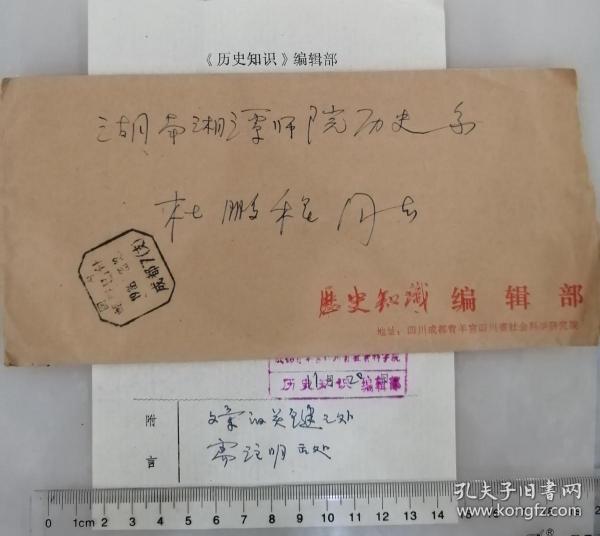 《历史知识》编辑部
湖南湘潭师院历史系
杜鹏程同志
成都7(支)
歷史知識 编辑部
地址：四川成都青羊宫四川省社会科学研究院
编辑部
附言
文章的关键之处
需注明出处
0 1cm 2 3 4 5 6 7 8 9 10 11 12 13 14 15
孔夫子旧书网
kongfz.com